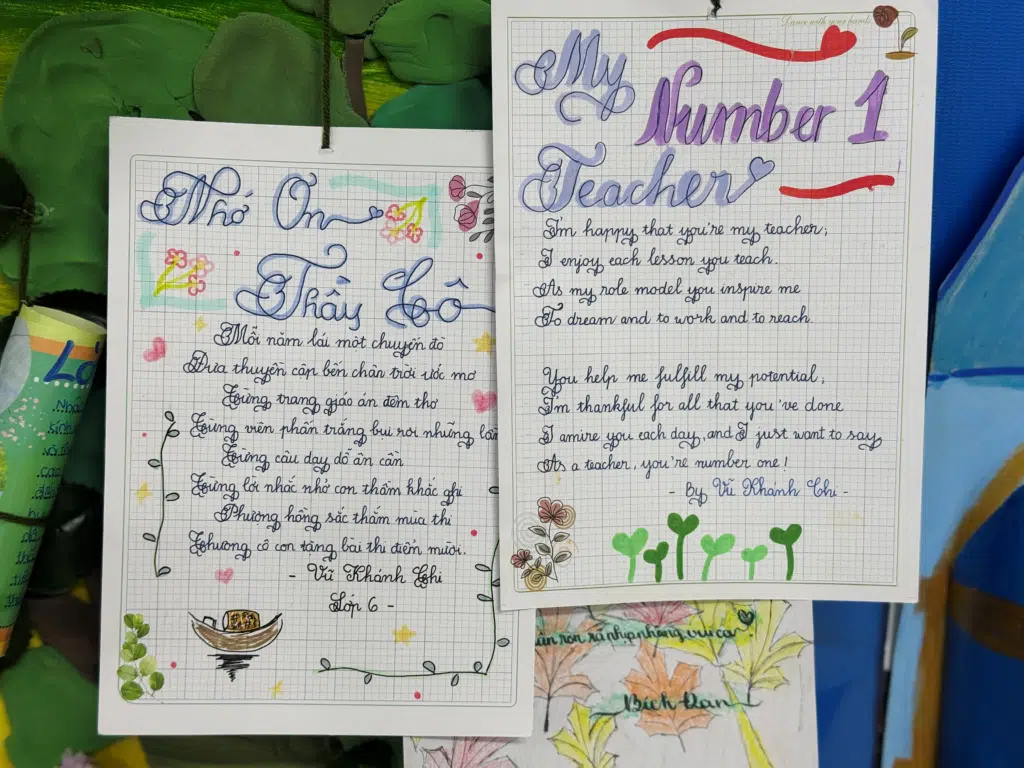 Nhớ Ơn
Thầy Cô
Mỗi năm lái một chuyến đò
Đưa thuyền cập bến chân trời ước mơ
Từng trang giáo án đêm thơ
Từng viên phấn trắng bụi rơi những
Từng câu dạy dỗ ân cần
Từng lời nhắc nhở con thầm khắc ghi
Phượng hồng sắc thắm mùa thi
Thương cô con tặng bài thi điểm mười.
- Vũ Khánh Chi
Lớp 6 -
Dance with your hands
My
Number 1
Teacher
I'm happy that you're my teacher;
I enjoy each lesson you teach.
As my role model you inspire me
To dream and to work and to reach.
You help me fulfill my potential;
I'm thankful for all that you've done
I amire you each day, and I just want to say
As a teacher, you're number one!
- By Vũ Khánh Chi -
Bích Đan